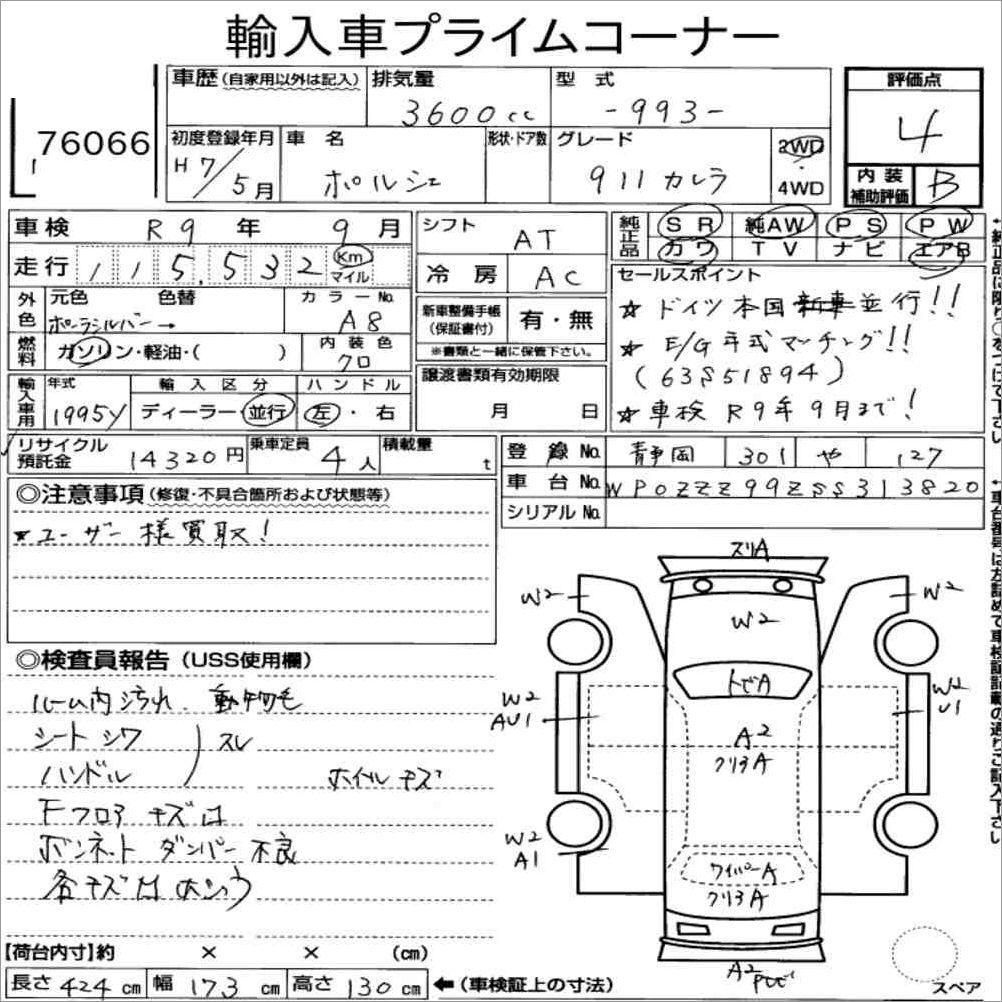 輸入車プライムコーナー
76066
車歴(自家用以外は記入)
排気量
3600cc
型式
-993-
評価点
4
初度登録年月
H7/5月
車名
ポルシェ
形状・ドア数
グレード
911カレラ
2WD
・
4WD
内装
補助評価
B
車検 R9年 9月
走行 115,532 Km
マイル
シフト AT
冷房 AC
純正品
SR 純AW PS PW
カワ TV ナビ エアB
セールスポイント
☆ドイツ本国新車並行!!
☆E/G年式マーチング!!
(63S51894)
☆車検R9年9月まで!
外色
元色 色替
ポーラシルバー→
カラーNo.
A8
新車整備手帳
(保証書付)
有・無
※書類と一緒に保管下さい。
燃料
ガソリン・軽油・( )
内装色
クロ
譲渡書類有効期限
月 日
輸入車用
年式
1995y
輸入区分
ディーラー・並行
ハンドル
左・右
リサイクル
預託金
14320円
乗車定員
4人
積載量
t
登録No. 静岡 301 や 127
車台No. WP0ZZZ99ZSS313820
シリアルNo.
◎注意事項(修復・不具合箇所および状態等)
★ユーザー様買取!
◎検査員報告(USS使用欄)
ルーム内汚れ、動物毛
シートシワ
ハンドル
スレ
ホイルキズ
Fフロアキズ凹
ボンネットダンパー不良
各キズ凹
スリA
W2
W2
W2
トビA
W2
AU1
W2
U1
A2
クリアA
W2
A1
ワイパーA
クリアA
A2
スペア
【荷台内寸】約 × × (cm)
長さ424cm 幅173cm 高さ130cm ←(車検証上の寸法)